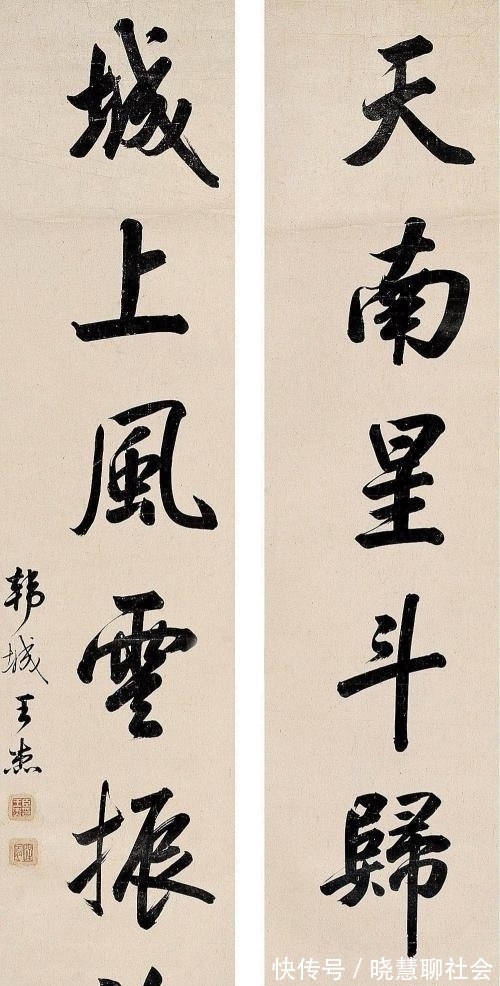 天南星斗歸
城上風雲振
韩城王杰
快传号/晓慧聊社会